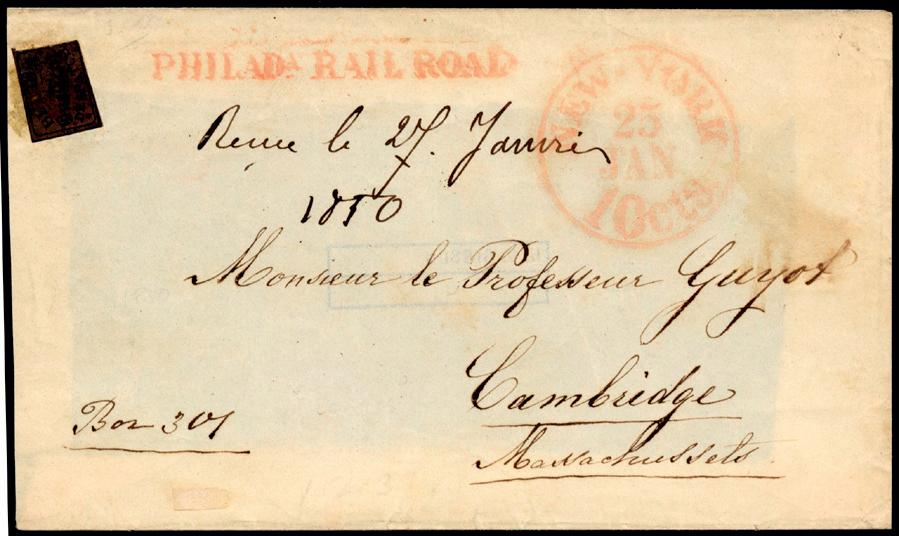 PHILADA. RAIL ROAD
NEW-YORK
25
JAN
10cts.
le 27. Janvier
1850
Monsieur le Professeur Guyot
Cambridge
Massachussets
Box 301